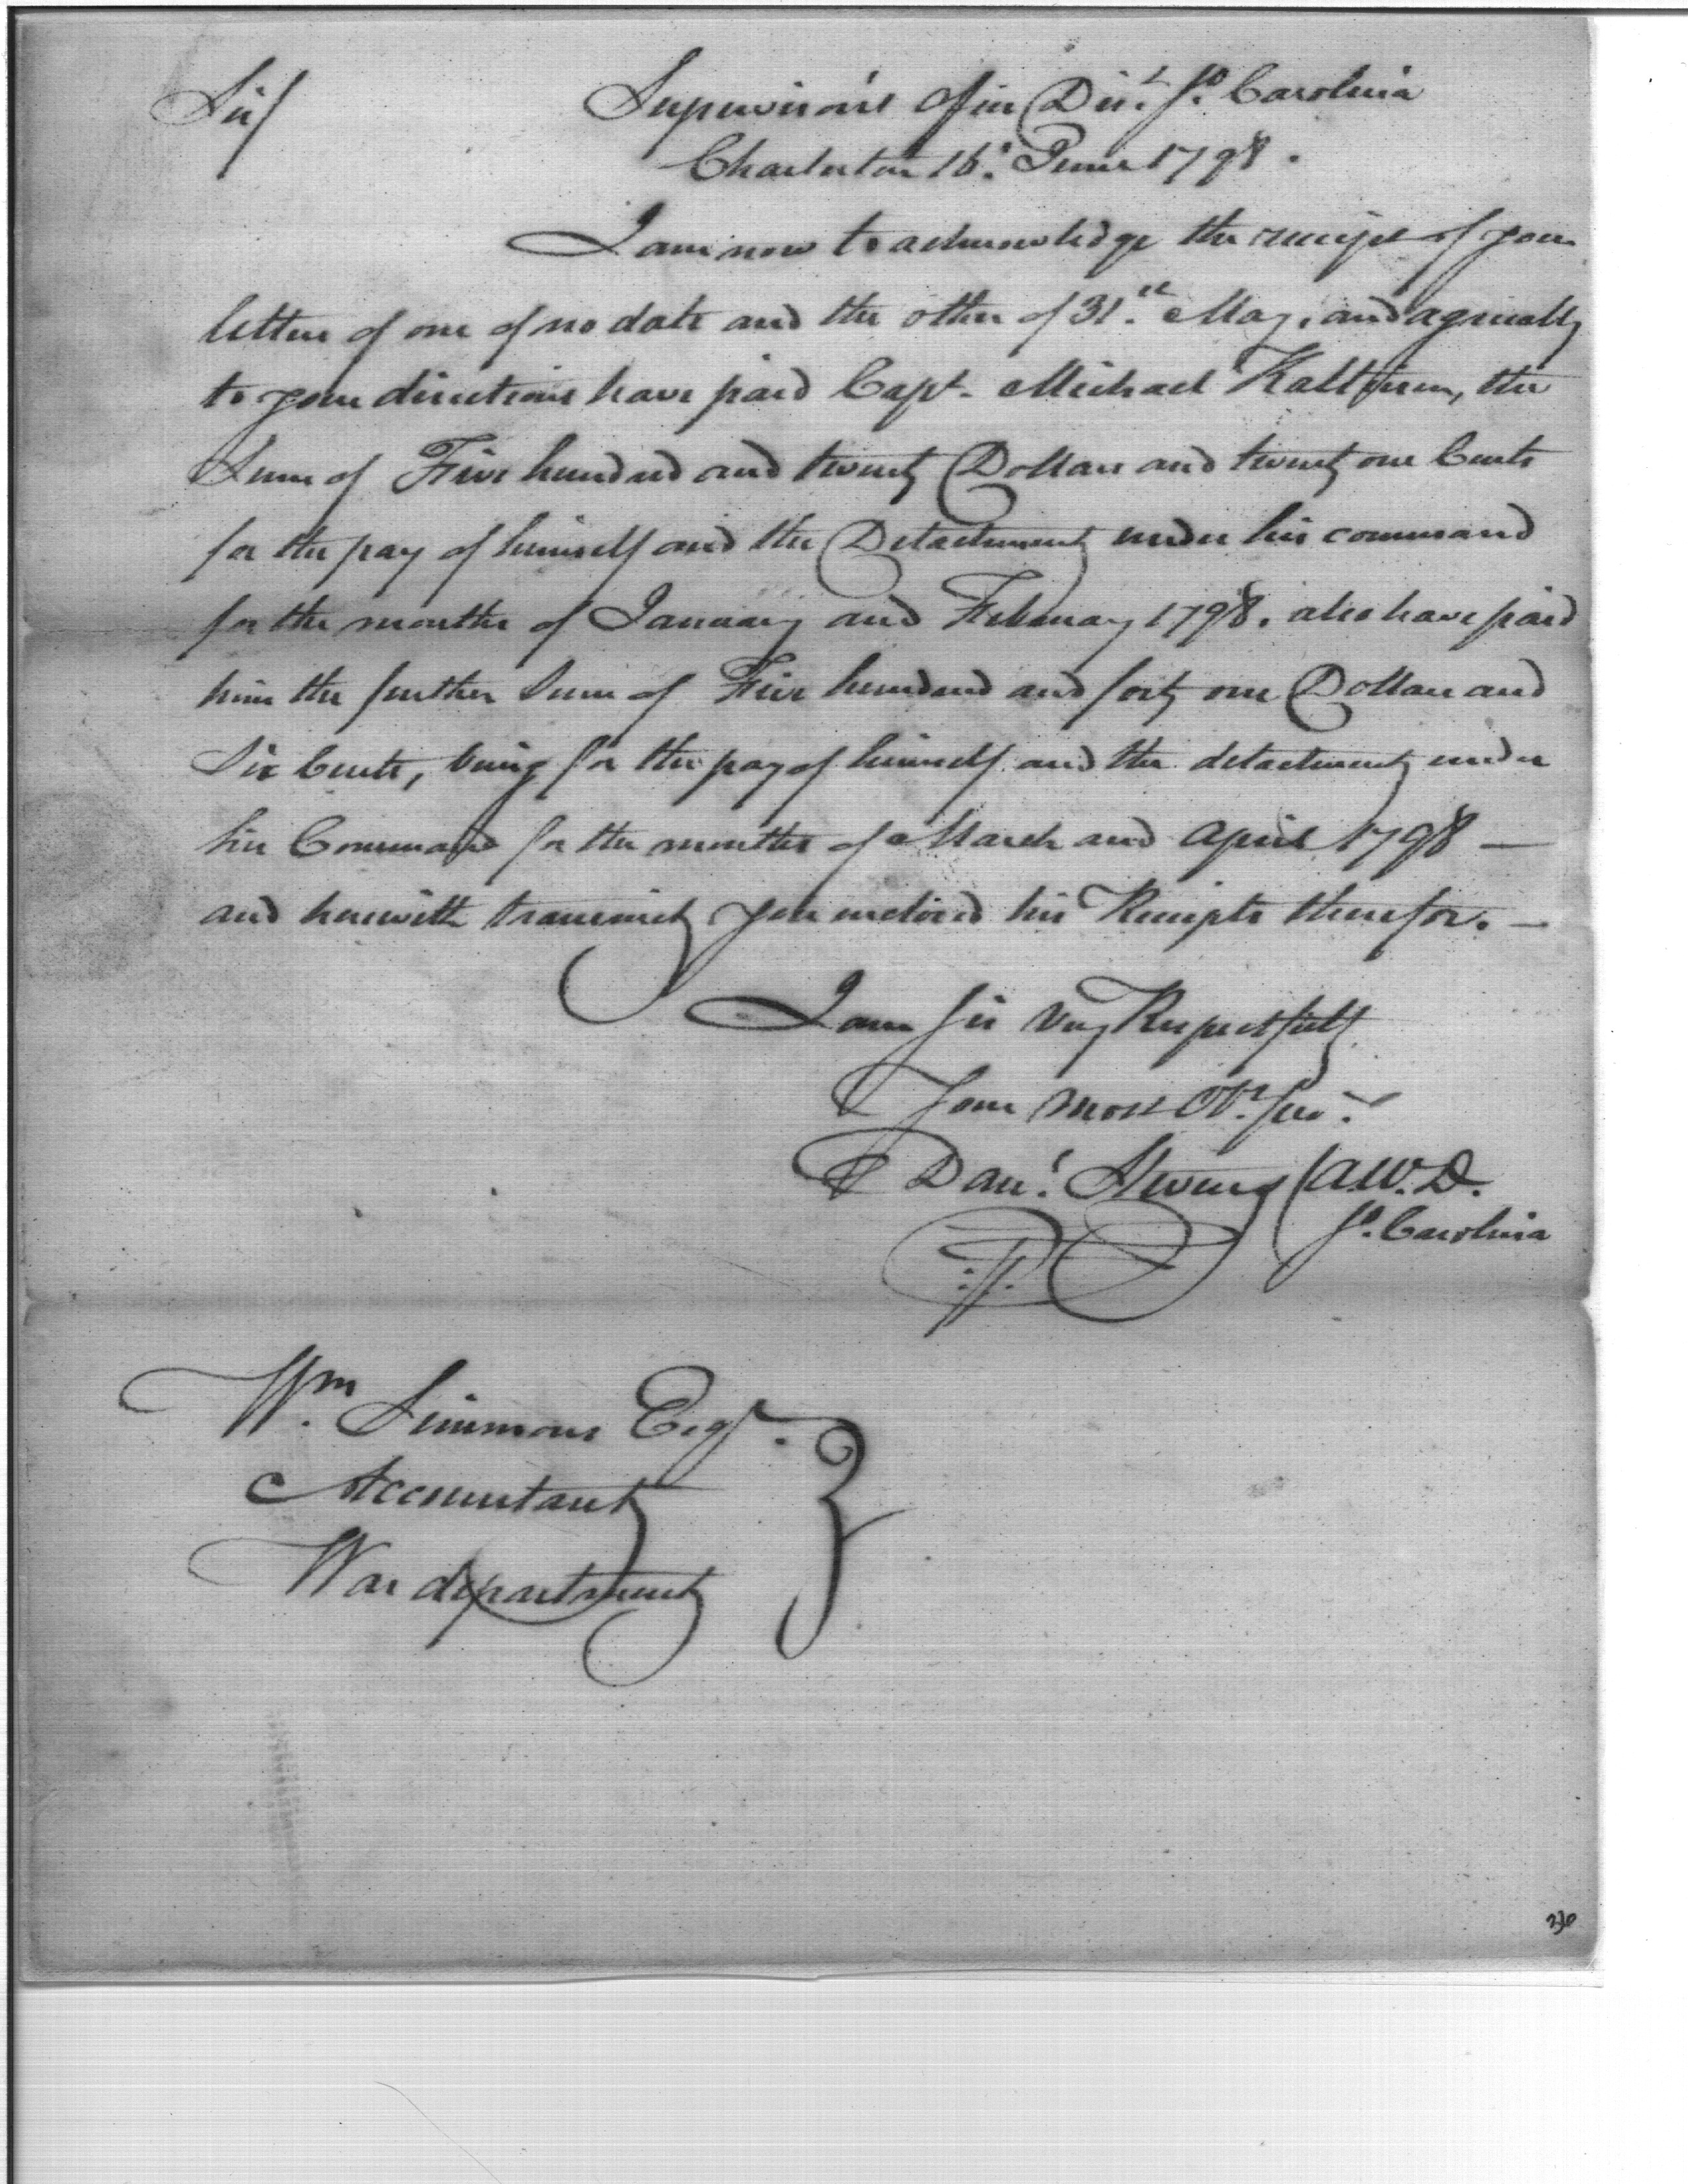 Sir/
Supervisors Office Dist. So. Carolina
Charleston 16. June 1798.
I am now to acknowledge the receipt of your
letters of one of no date and the other of 31.st May, and agreeably
to your directions have paid Capt. Michael Kalteisen, the
Sum of Five hundred and twenty Dollars and twenty one Cents
for the pay of himself and the Detachment under his command
for the months of January and February 1798. also have paid
him the further Sum of Five hundred and forty one Dollars and
Six Cents, being for the pay of himself and the detachment under
his Command for the months of March and April 1798 —
and herewith transmit you enclosed his Receipts therefor. —
I am Sir Very Respectfully
Your most Ob.t Serv.t
Dan.l Stevens A.W.D.
So. Carolina
Wm. Simmons Esqr.
Accountant
War department